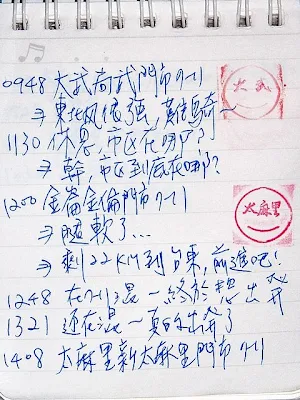 0948 大武尚武門市 7-11
大武
⇒ 東北风很強, 難騎~
1130 休息, 市区在哪?
⇒ 幹, 市区到底在哪?
1200 金崙金倫門市 7-11
太麻里
⇒ 腿軟了...
⇒ 剩22KM到台東, 前進吧!
1248 在7-11混~終於想出発
1321 还在混~真的出発了
1408 太麻里新太麻里門市 7-11